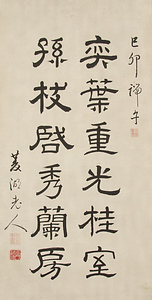 己卯端午
奕葉重光桂室
孫枝启秀蘭房
菱湖老人